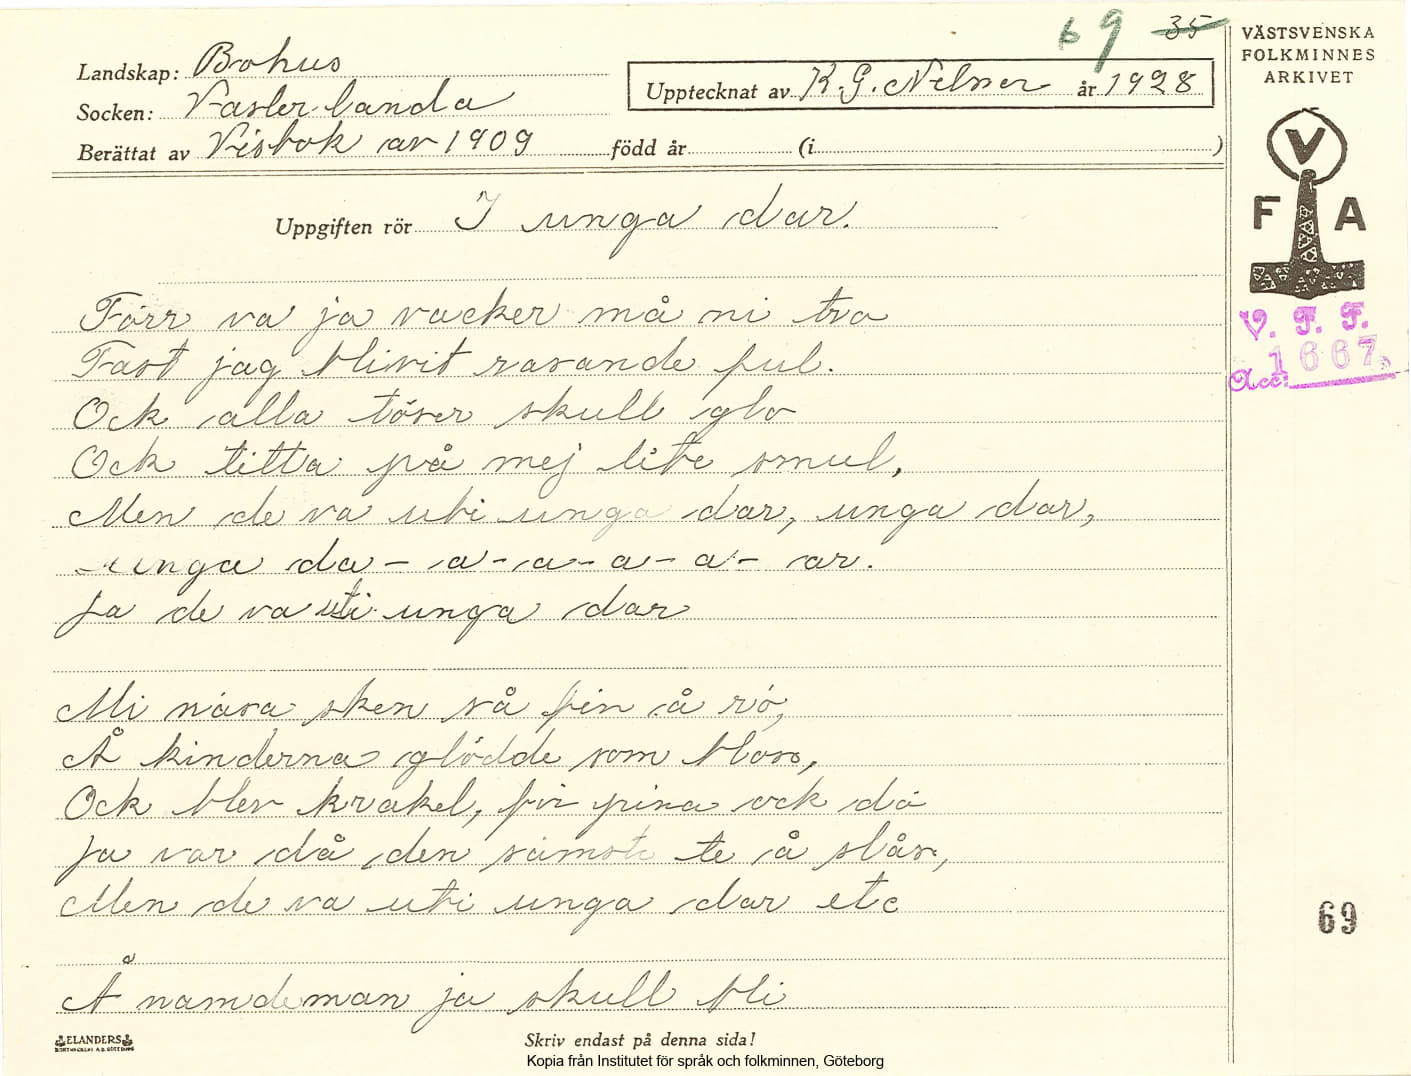 69 35
VÄSTSVENSKA
FOLKMINNES
ARKIVET
Landskap: Bohus
Upptecknat av K. G. Nelsner år 1928
Socken: Västerlanda
Berättat av Visbok av 1909 född år (i )
V
F A
Uppgiften rör I unga dar.
V. F. F.
Acc: 1667
Förr va ja vacker må ni tro
Fast jag blivit rasande ful.
Ock alla töser skull glo
Ock titta på mej lite smul,
Men de va uti unga dar, unga dar,
unga da- a-a-a-a- ar.
Ja de va uti unga dar
Mi näsa sken så fin å rö,
Å kinderna glödde som blos,
Ock blev krakel, för pina ock dö
Ja var då den sämste te å slås,
Men de va uti unga dar etc
69
Å nämdeman ja skull bli
ELANDERS
Skriv endast på denna sida!
Kopia från Institutet för språk och folkminnen, Göteborg